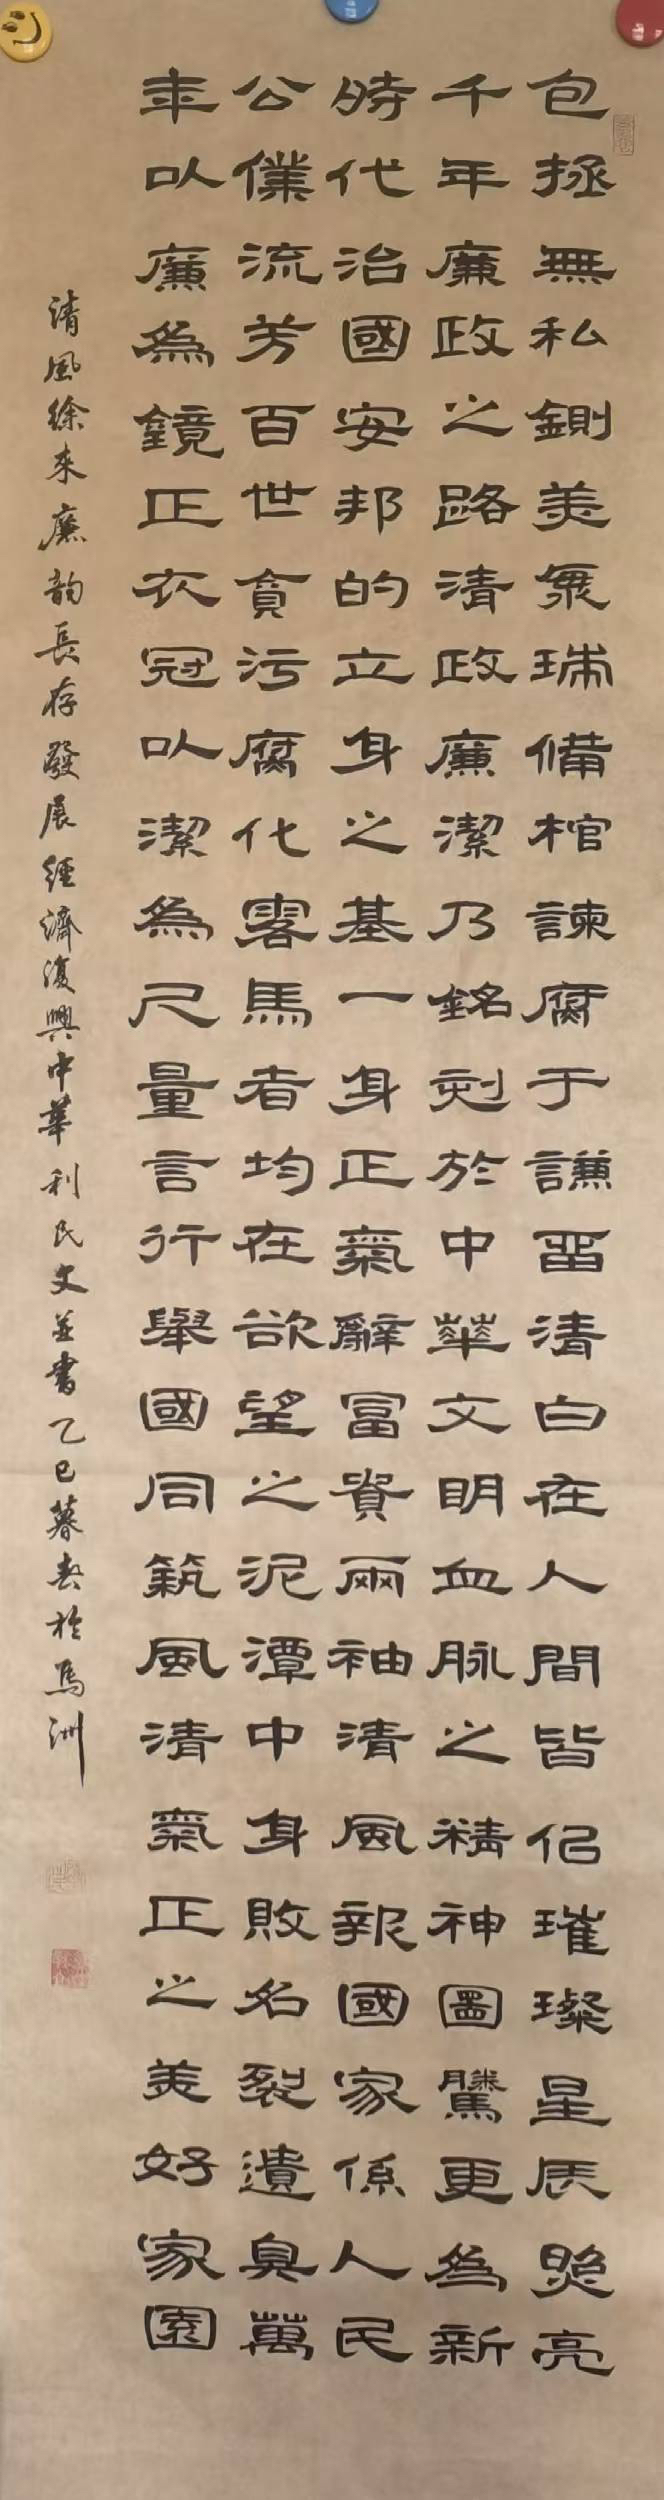 包拯無私鍘美氣瑞備棺諫腐于謙留清白在人間皆似璀璨星辰照亮
千年廉政之路清政廉潔乃銘刻於中華文明血脉之精神圖騰更為新
時代治國安邦的立身之基一身正氣辭富貴兩袖清風報國家係人民
公僕流芳百世貪污腐化害馬者均在欲望之泥潭中身敗名裂遺臭萬
年以廉為鏡正衣冠以潔為尺量言行舉國同築風清氣正之美好家園
清風徐來廉韵長存發展經濟復興中華利民文並書乙巳暮春於馬洲